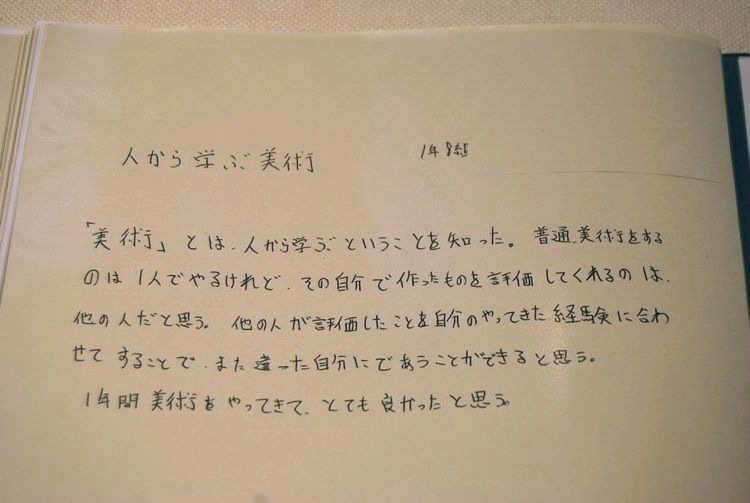 人から学ぶ美術 1年8組
「美術」とは、人から学ぶということを知った。普通、美術をする
のは1人でやるけれど、その自分で作ったものを評価してくれるのは、
他の人だと思う。他の人が評価したことを自分のやってきた経験に合わ
せてすることで、また違った自分にであうことができると思う。
1年間美術をやってきて、とても良かったと思う。